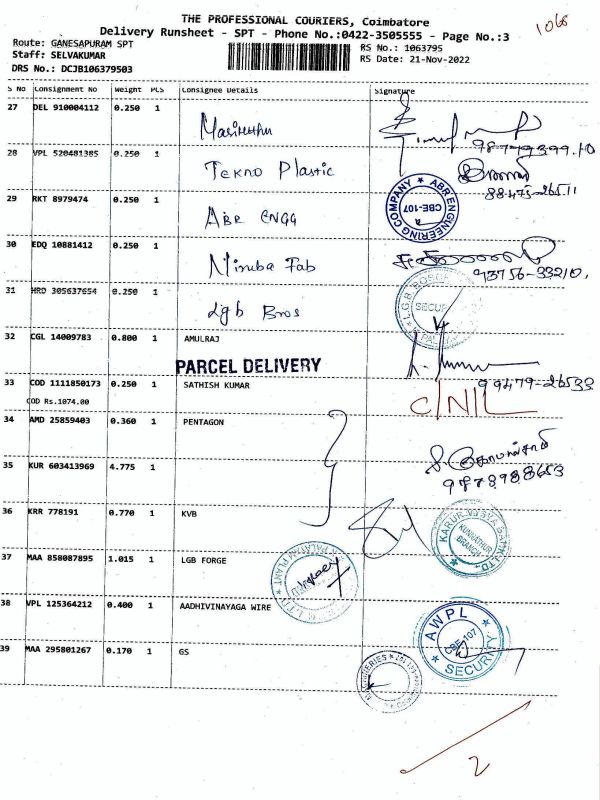 THE PROFESSIONAL COURIERS, Coimbatore
1068
Delivery Runsheet - SPT - Phone No.:0422-3505555 - Page No.:3
Route: GANESAPURAM SPT
RS No.: 1063795
Staff: SELVAKUMAR
RS Date: 21-Nov-2022
DRS No.: DCJB106379503
S No Consignment No Weight PCS Consignee Details Signature
27 DEL 910004112 0.250 1
28 VPL 520481385 0.250 1 Tekno Plastic
88475-26511
29 RKT 8979474 0.250 1 ABR ENGG
ABR ENGINEERING COMPANY CBE-107
30 EDQ 10881412 0.250 1 Miruba Fab
93756-33210.
31 HRD 305637654 0.250 1 Lgb Bros
32 CGL 14009783 0.800 1 AMULRAJ
PARCEL DELIVERY
99479-26533
33 COD 1111850173 0.250 1 SATHISH KUMAR
COD Rs.1074.00
C/N/L
34 AMD 25859403 0.360 1 PENTAGON
35 KUR 603413969 4.775 1
36 KRR 778191 0.770 1 KVB
KARUR VYSYA BANK LTD. KUNNATHUR BRANCH
37 MAA 858087895 1.015 1 LGB FORGE
38 VPL 125364212 0.400 1 AADHIVINAYAGA WIRE
AWPL CBE-107 SECURITY
39 MAA 295801267 0.170 1 GS
2